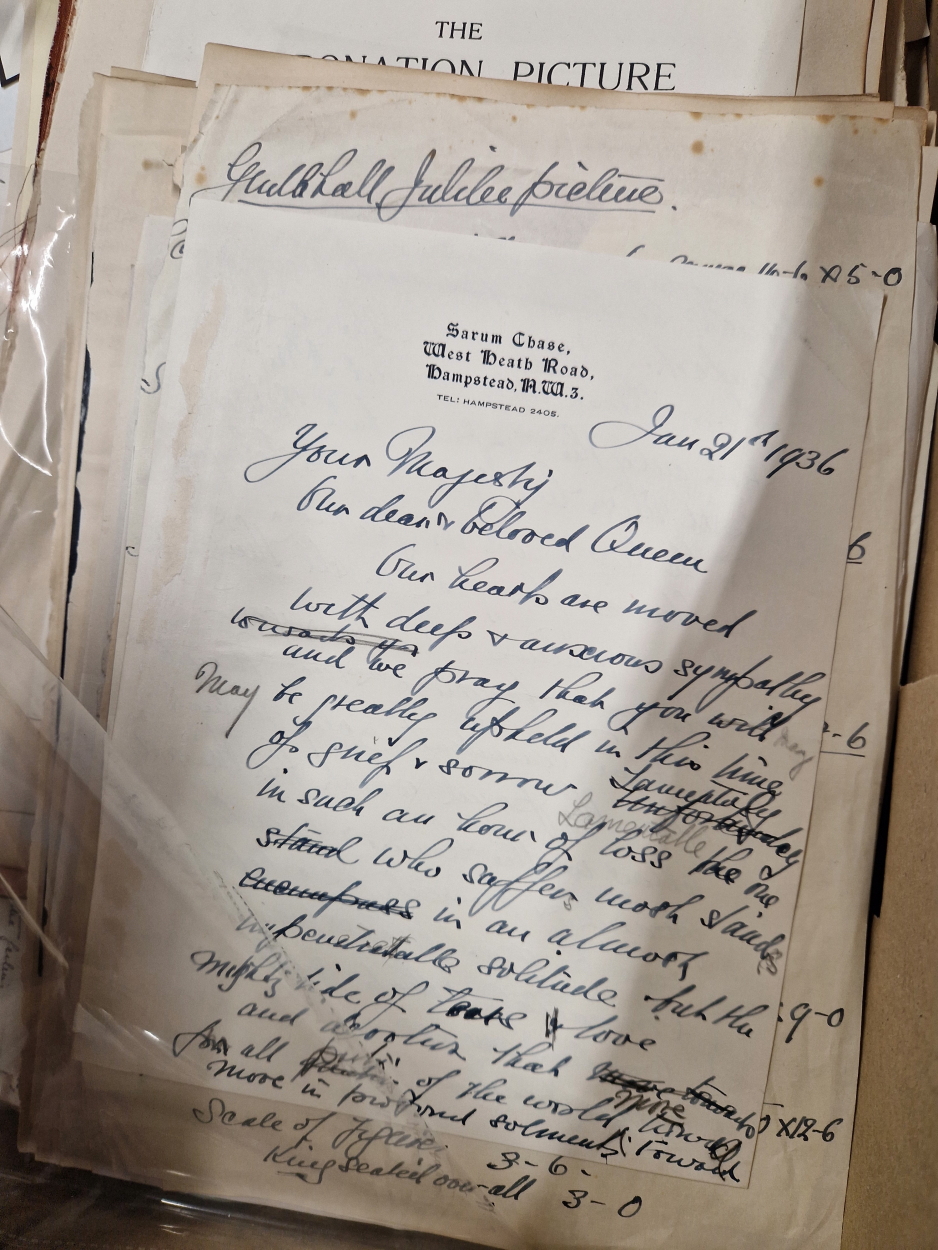 THE
CORONATION PICTURE
Guildhall Jubilee picture.
x 5-0
Sarum Chase,
West Heath Road,
Hampstead, N.W.3.
TEL: HAMPSTEAD 2405.
Jan 21st 1936
Your Majesty
Our dear & beloved Queen
Our hearts are moved
with deep & anxious sympathy
towards the
and we pray that you will may
May be greatly upheld in this time
of grief & sorrow Lamentably
Unfortunately
Lamentable
in such an hour of loss the one
stand who suffers most stands
encompass in an almost
penetrable solitude but the
mighty tide of tears & love
and devotion that
more
for all of the world toward
more in profound solemnity toward
x 12-6
6
-6
9-0
Scale of Figures 3-6-
King seated over-all 3-0